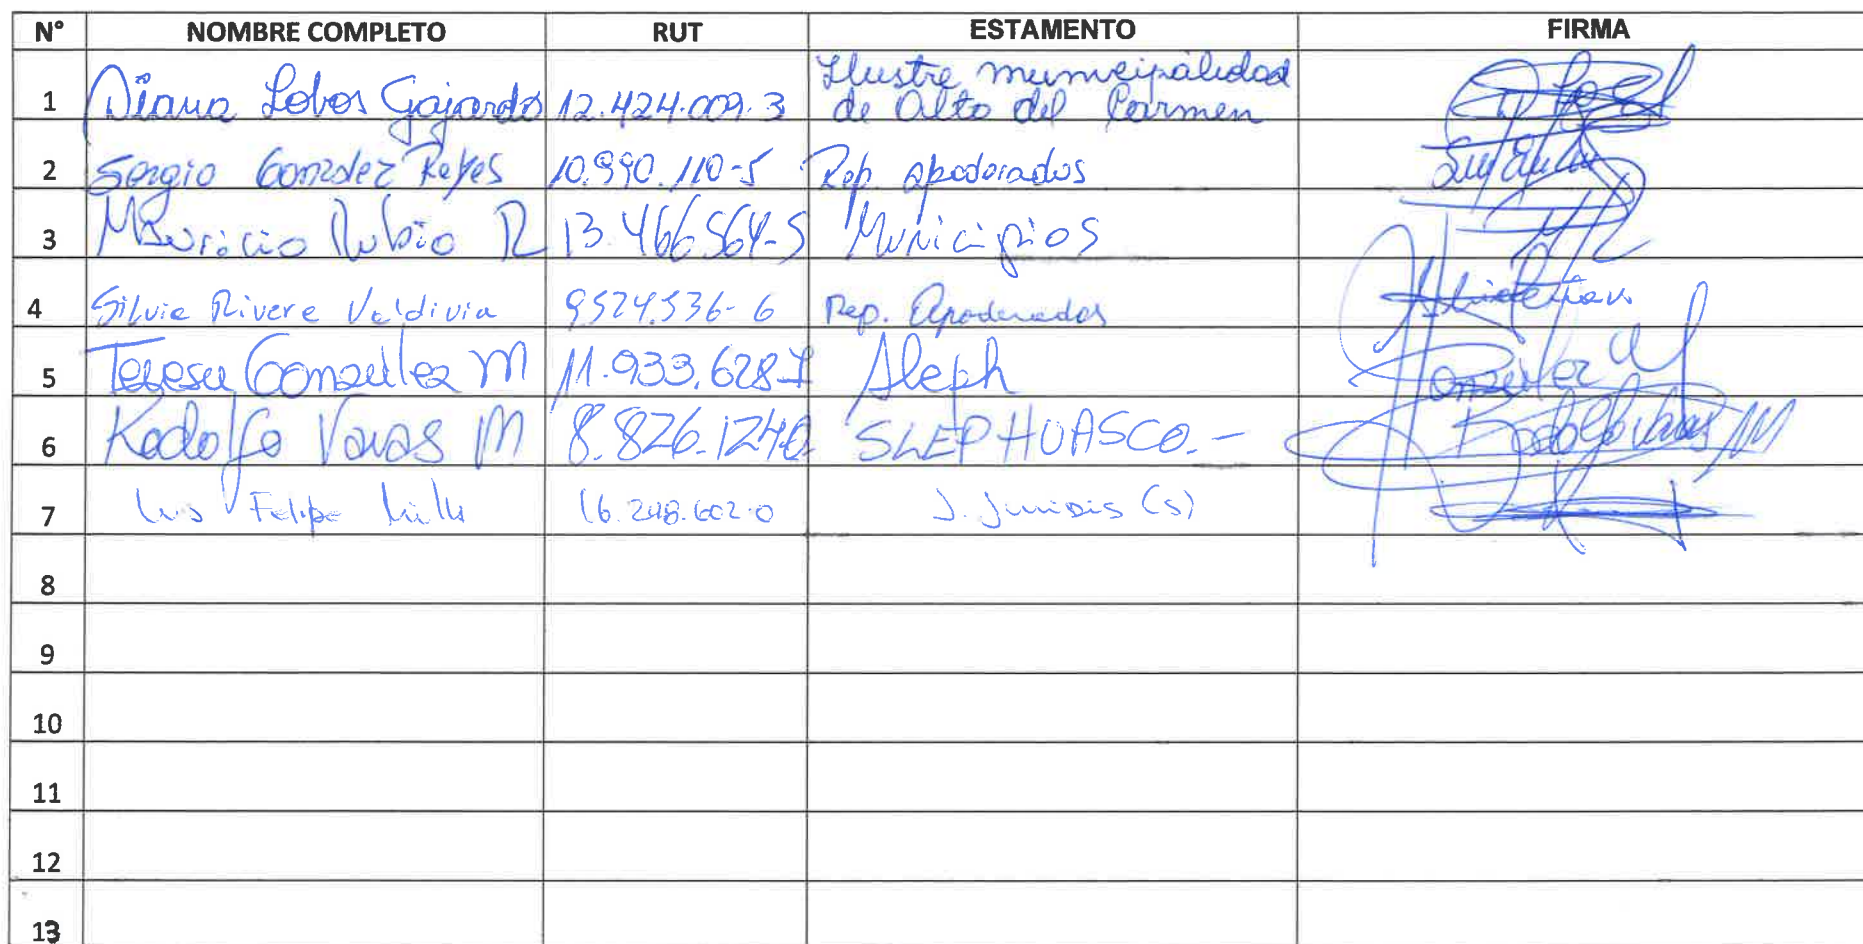 N° NOMBRE COMPLETO RUT ESTAMENTO FIRMA
Ilustre municipalidad
1 Diana Lobos Gajardo 12.424.009.3 de Alto del Carmen
2 Sergio Gonzalez Reyes 10.990.110-5 Rep. apoderados
3 Mauricio Rubio R 13.466.564-5 Municipios
4 Silvia Rivera Valdivia 9524536-6 Rep. Apoderados
5 Teresa Gonzalez M 11.933.628-7 Aleph Gonzalez M
6 Rodolfo Varas M 8.826.124-0 SLEP HUASCO.- Rodolfo Varas M
7 Luis Felipe 16.248.602-0 (S)
8
9
10
11
12
13